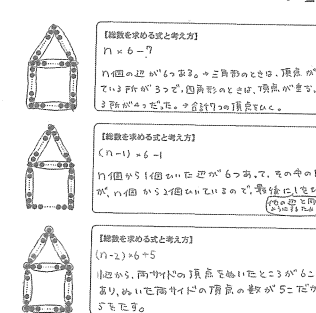 【総数を求める式と考え方】
n×6−7
n個の辺が6つある。→三角形のときは、頂点が
ている所が3つで、四角形のときは、頂点が重な
る所が4つだった。→合計7つの頂点をひく。
【総数を求める式と考え方】
(n−1)×6−1
n個から1個ひいた辺が6つあって、その中の
が、n個から2個ひいているので、最後に1をひ
他の辺と同
【総数を求める式と考え方】
(n−2)×6+5
1辺から、両サイドの頂点をぬいたところが6こ
あり、ぬいた両サイドの頂点の数が5こだか
5をたす。